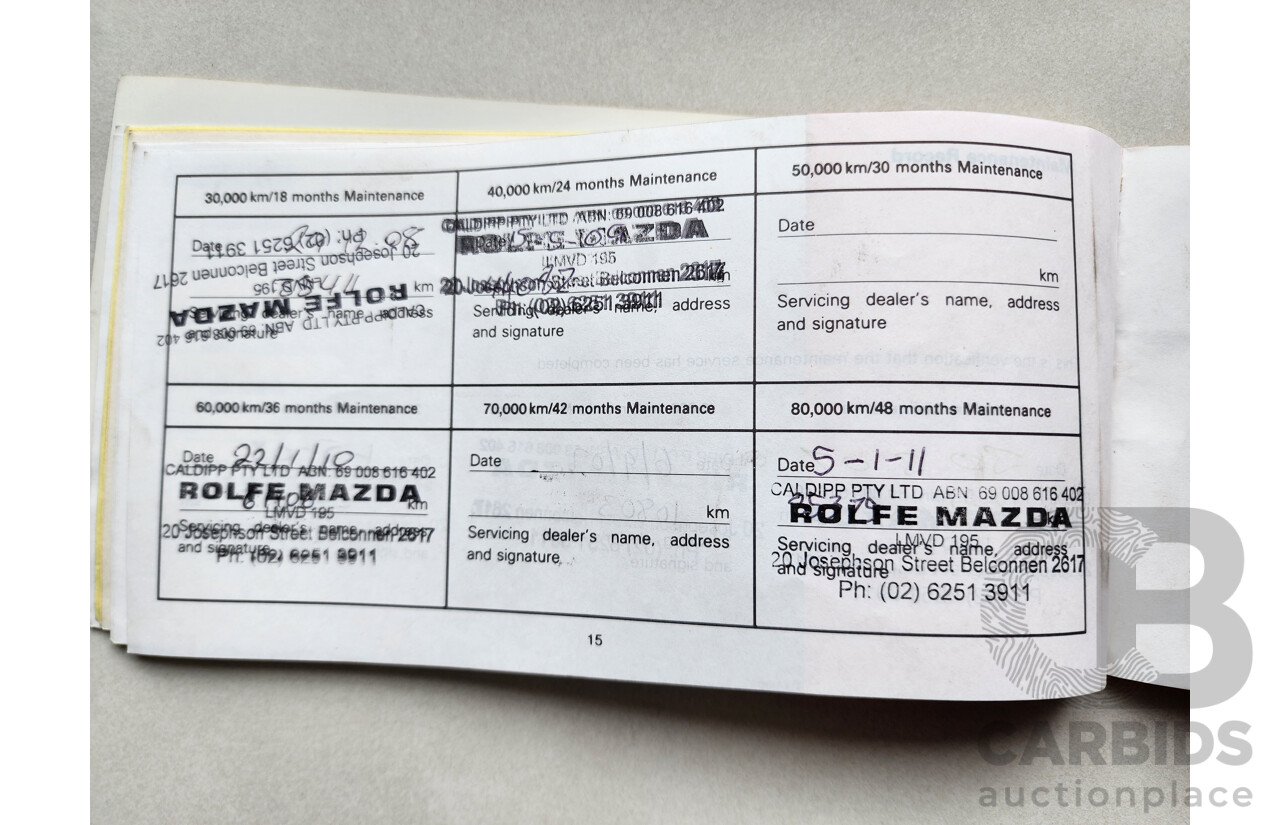 30,000 km/18 months Maintenance
Date
20 Josephson Street Belconnen 2617
km
ROLFE MAZDA
Servicing dealer's name, address
and signature
40,000 km/24 months Maintenance
CALDIPP PTY LTD ABN: 69 008 616 402
ROLFE MAZDA
Date
LMVD 195
km
20 Josephson Street Belconnen 2617
Ph: (02) 6251 3911
Servicing dealer's name, address
and signature
50,000 km/30 months Maintenance
Date
km
Servicing dealer's name, address
and signature
60,000 km/36 months Maintenance
Date 22/1/10
CALDIPP PTY LTD ABN: 69 008 616 402
ROLFE MAZDA
km
LMVD 195
Servicing dealer's name, address
20 Josephson Street Belconnen 2617
and signature
Ph: (02) 6251 3911
70,000 km/42 months Maintenance
Date
km
Servicing dealer's name, address
and signature
80,000 km/48 months Maintenance
Date 5-1-11
CALDIPP PTY LTD ABN 69 008 616 402
ROLFE MAZDA
km
LMVD 195
Servicing dealer's name, address
20 Josephson Street Belconnen 2617
and signature
Ph: (02) 6251 3911
15
CARBIDS
auctionplace